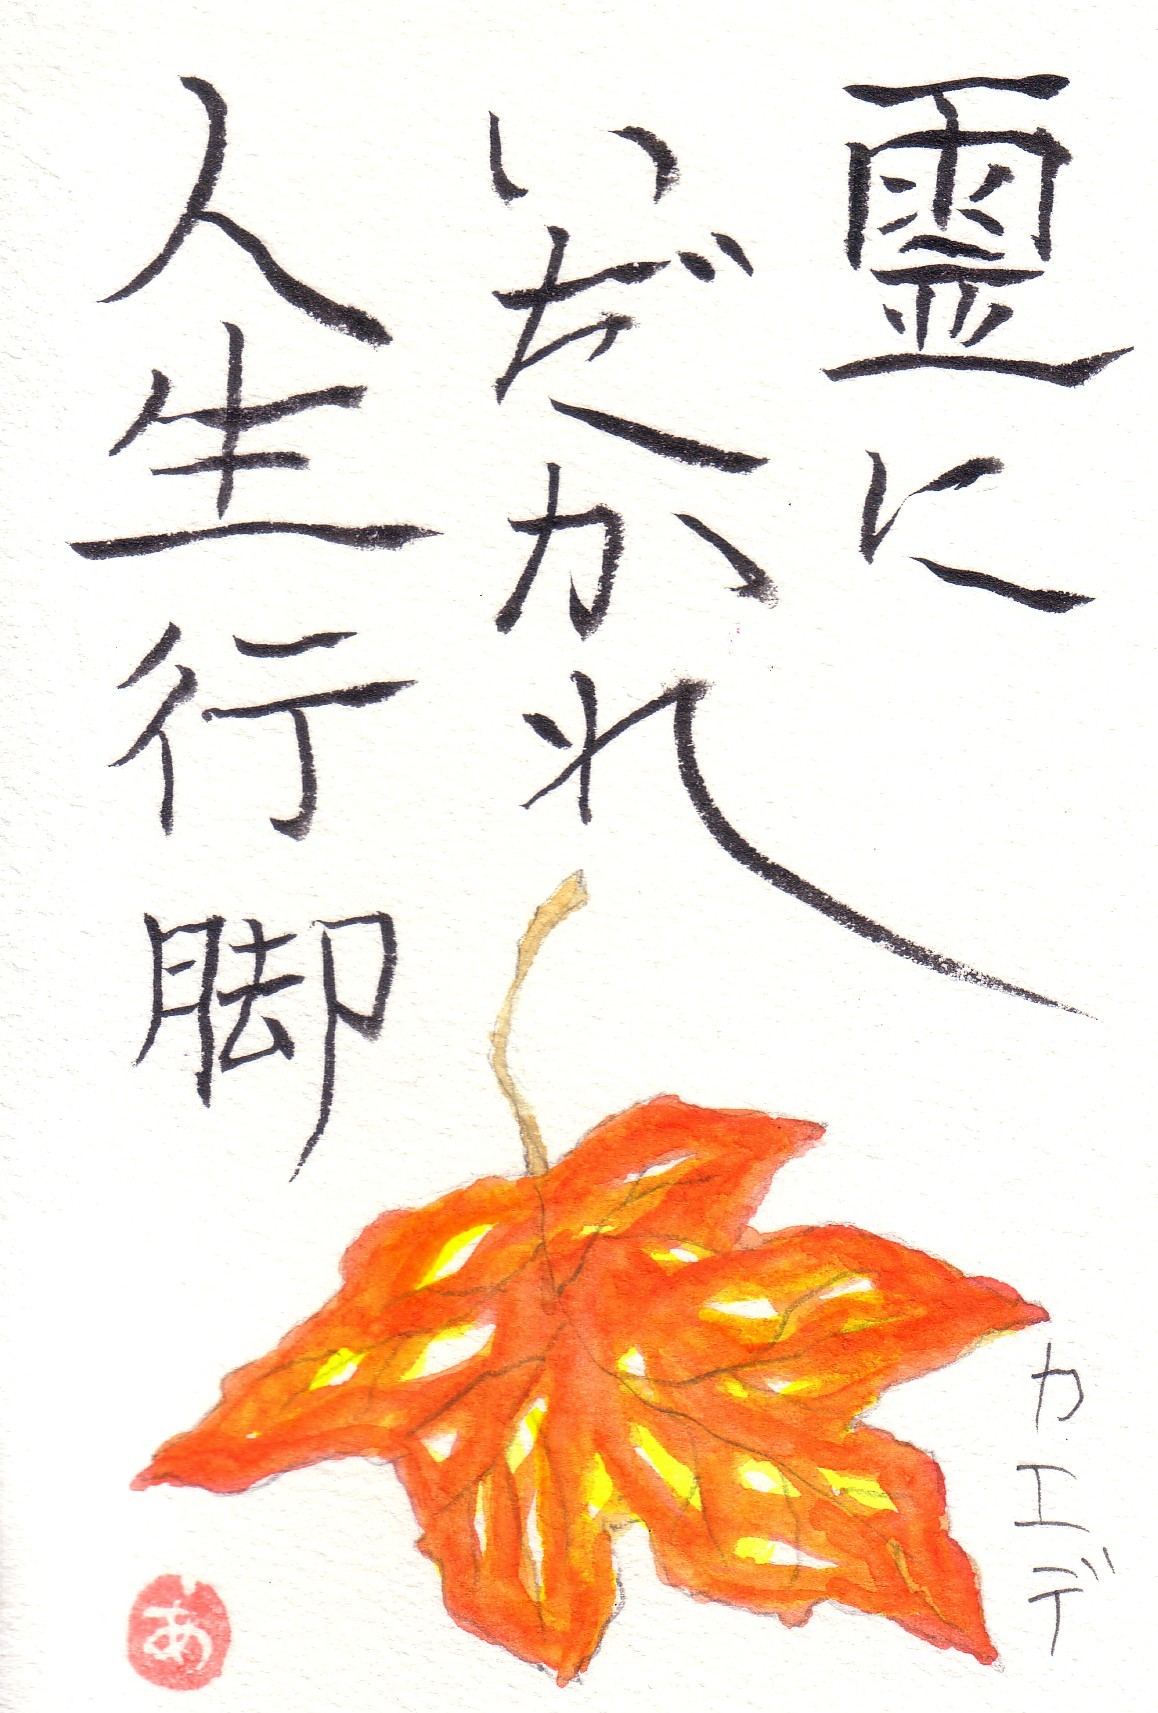 霊に
いだかれ
人生行脚
カエデ
あ